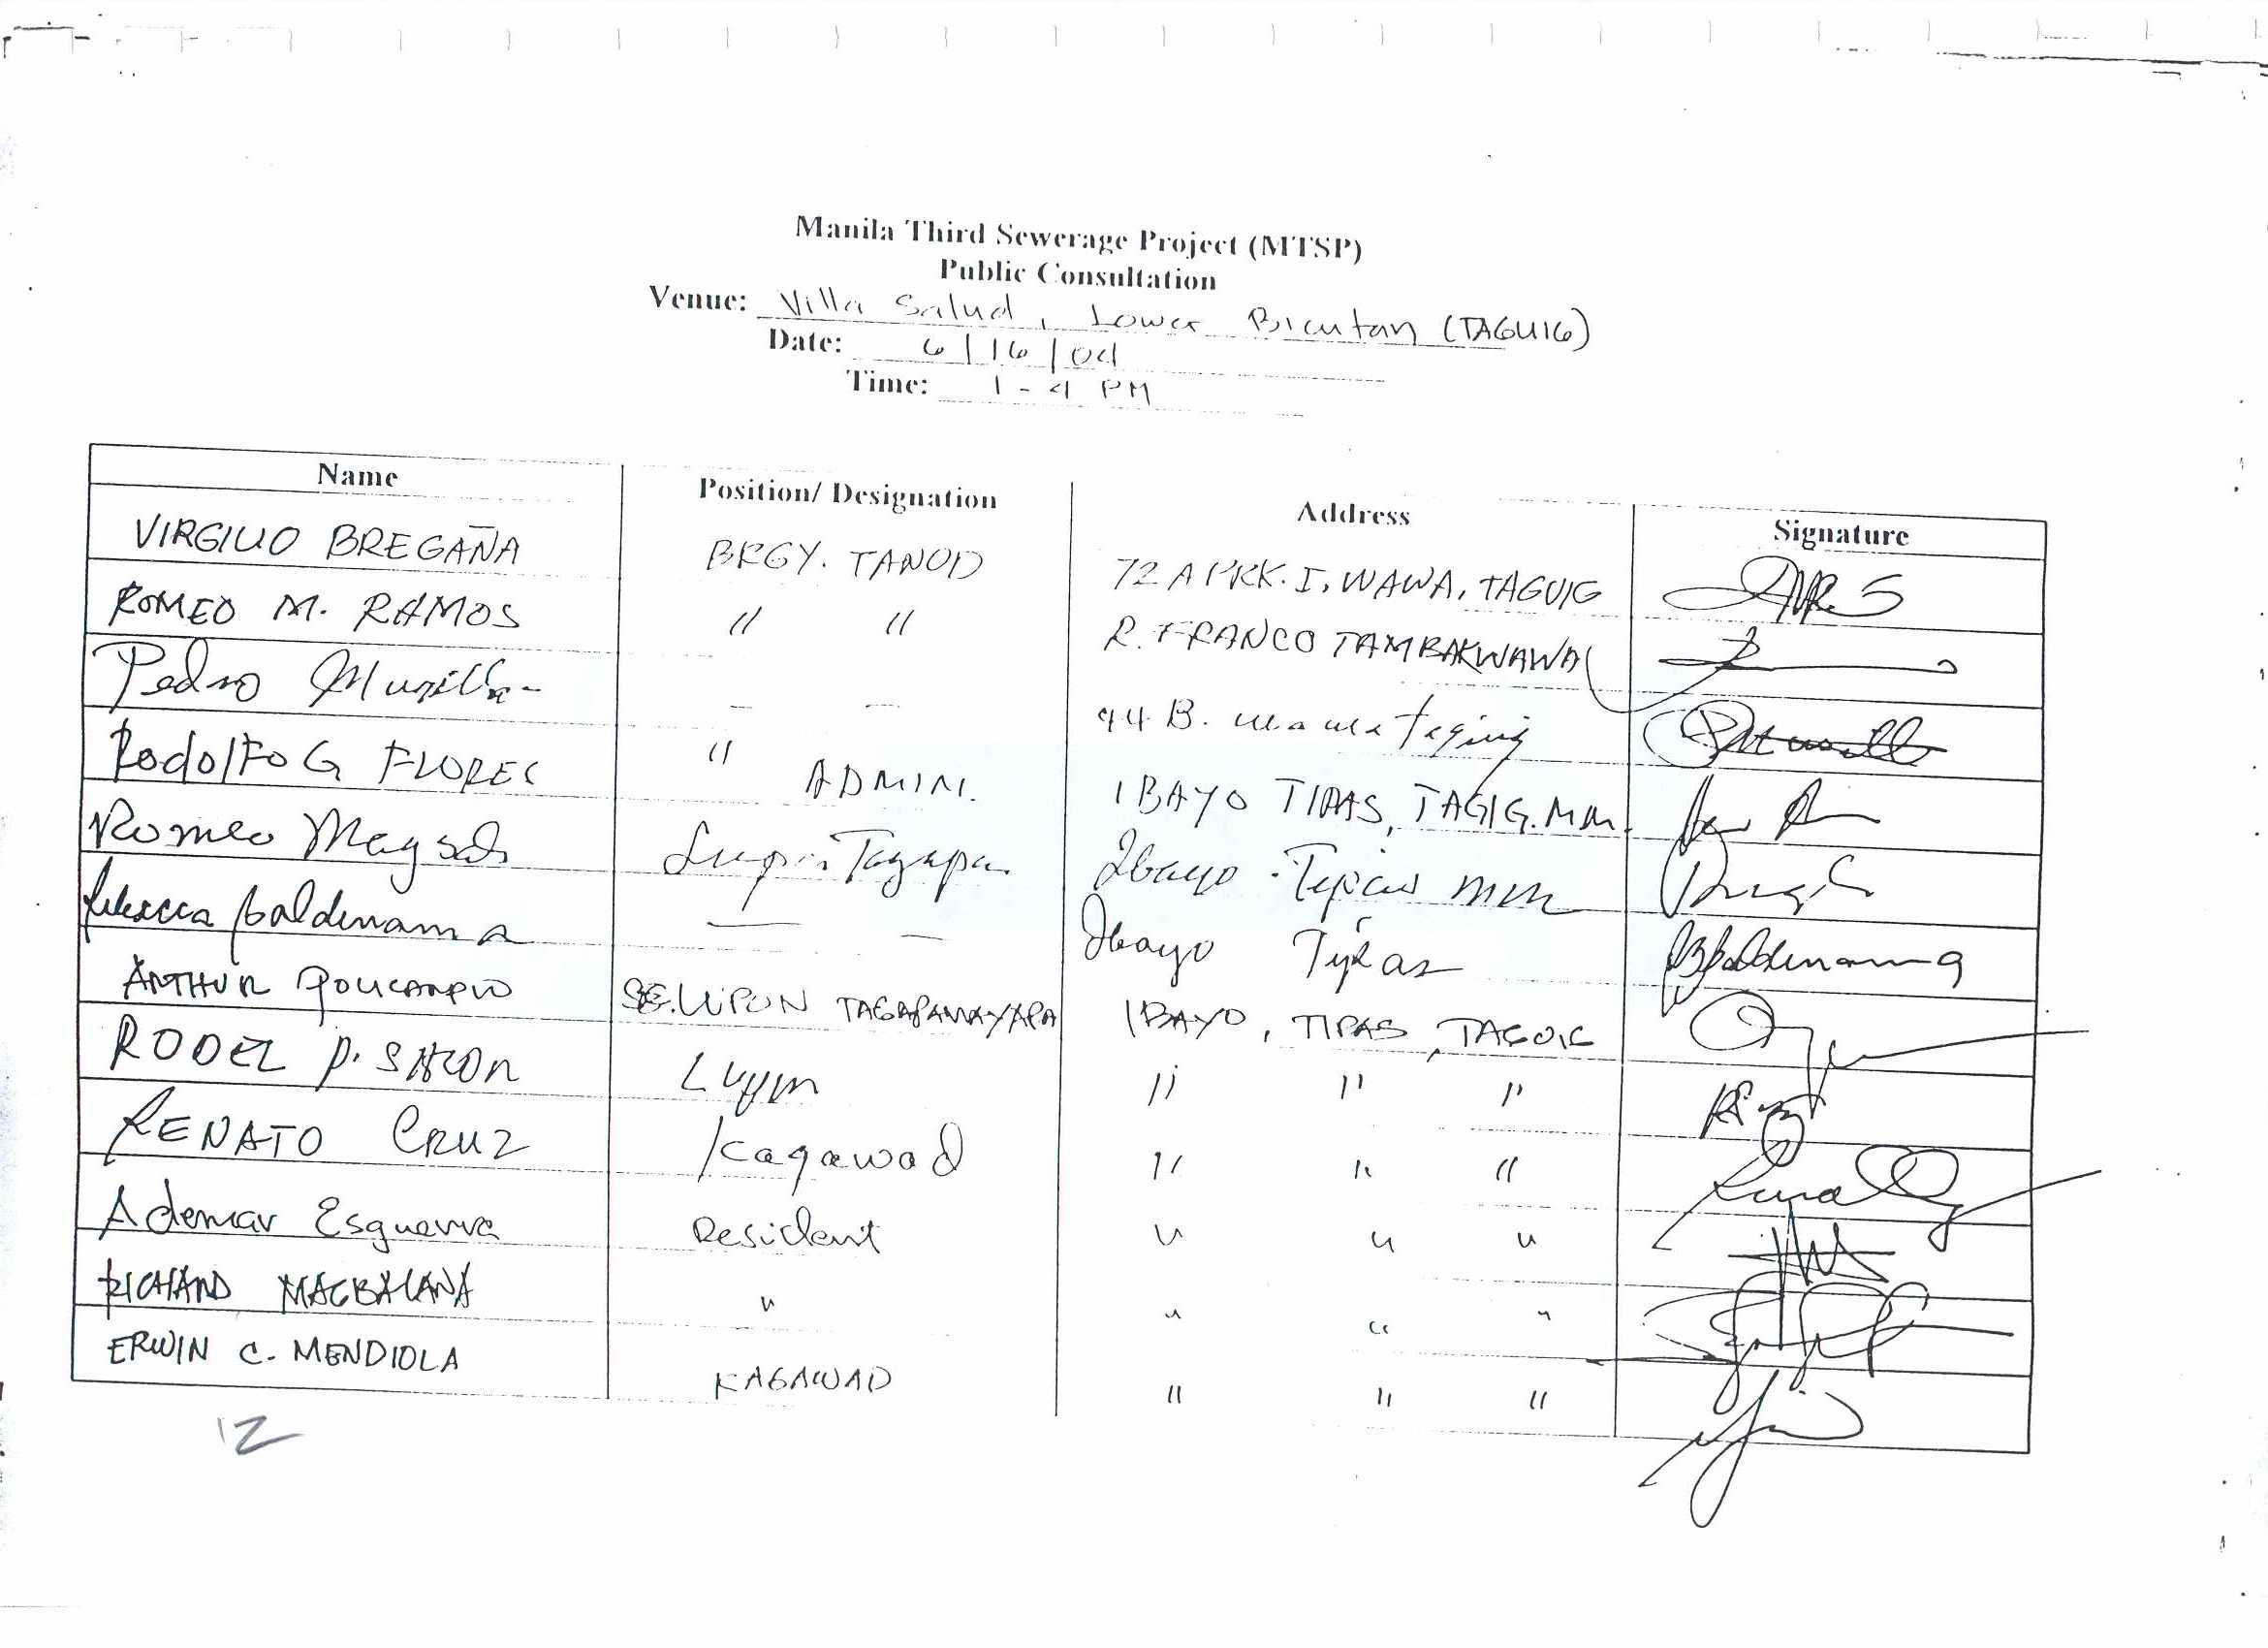 Manila Third Sewerage Project (MTSP)
Public Consultation
Venue: Villa Salud, Lower Bicutan (TAGUIG)
Date: 6/16/04
Time: 1-4 PM
Name Position/ Designation Address Signature
VIRGILIO BREGAÑA BRGY. TANOD 72 A PRK. I, WAWA, TAGUIG
ROMEO M. RAMOS " " R. FRANCO TAMBAKWAWA
Pedro — — 44 B.
Rodolfo G FLORES " ADMIN. IBAYO TIPAS, TAGIG. M.M.
Romeo Ibayo - Tipas MM
Baldenama — — Ibayo Tipas
ARTHUR POLICARPIO SE. LUPON TAGAPAMAYAPA IBAYO, TIPAS, TAGUIG
RODEL P. " " "
RENATO CRUZ Kagawad " " "
Ademar Esguerra Resident " " "
RICHARD MAGBALANA " " " "
ERWIN C. MENDIOLA KAGAWAD " " "
12